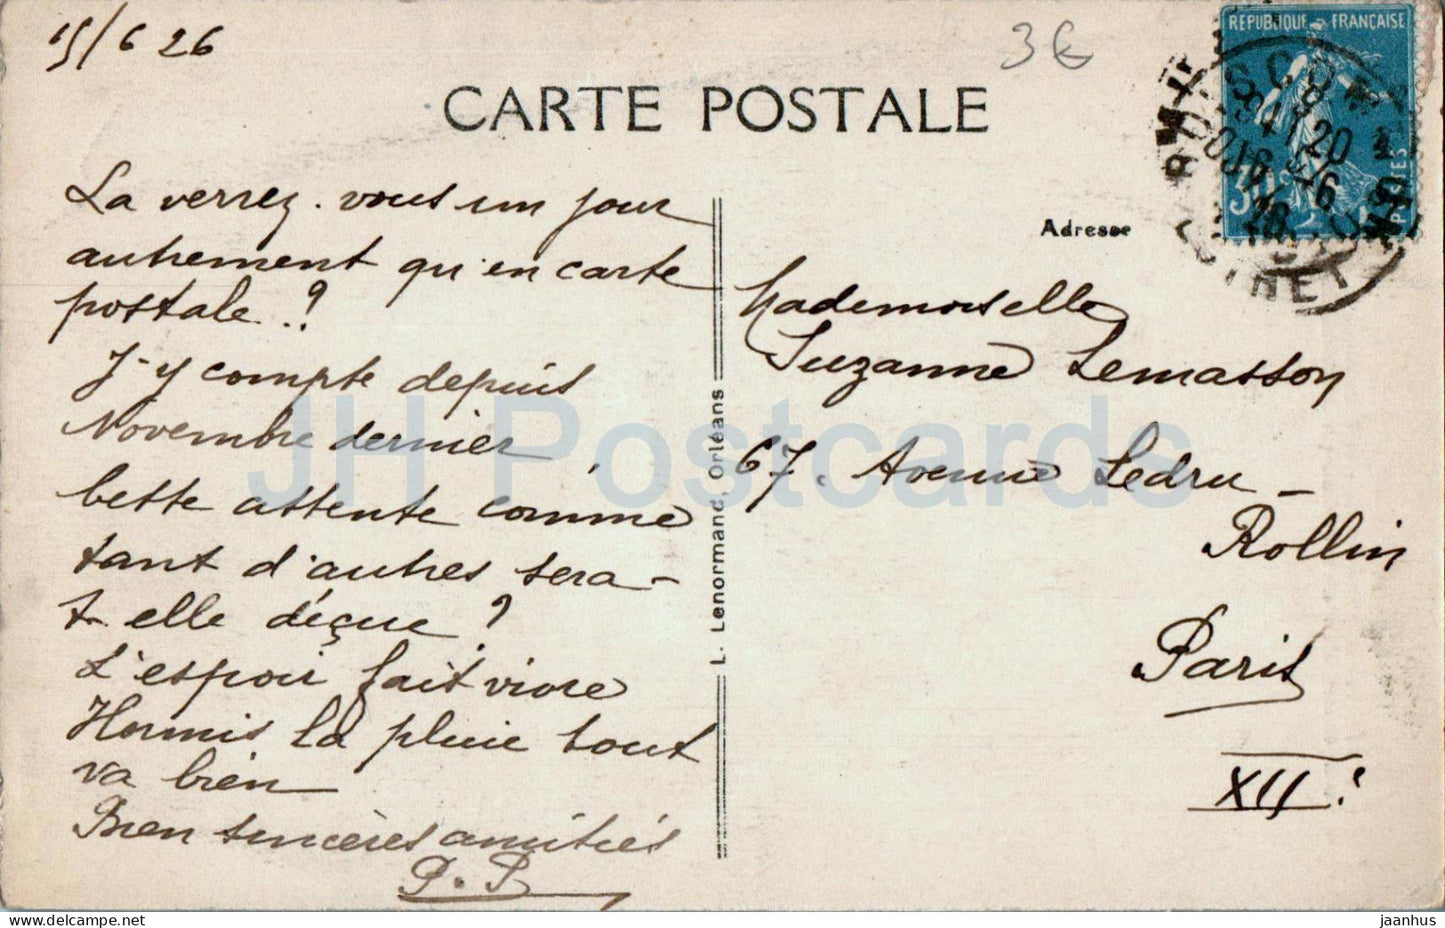 15/6 26
3€
CARTE POSTALE
REPUBLIQUE FRANÇAISE
La verrez. vous un jour
autrement qu'en carte
postale.?
J-y compte depuis
Novembre dernier.
Cette attente comme
tant d'autres sera-
t-elle déçue?
L'espoir fait vivre
Hormis la pluie tout
va bien
Bien sincères amitiés
P.P
L. Lenormand, Orléans
Adresse
Mademoiselle
Suzanne Lemasson
67. Avenue Ledru-
Rollin
Paris
XII
LOIRET
JH Postcards
delcampe.net
jaanhus